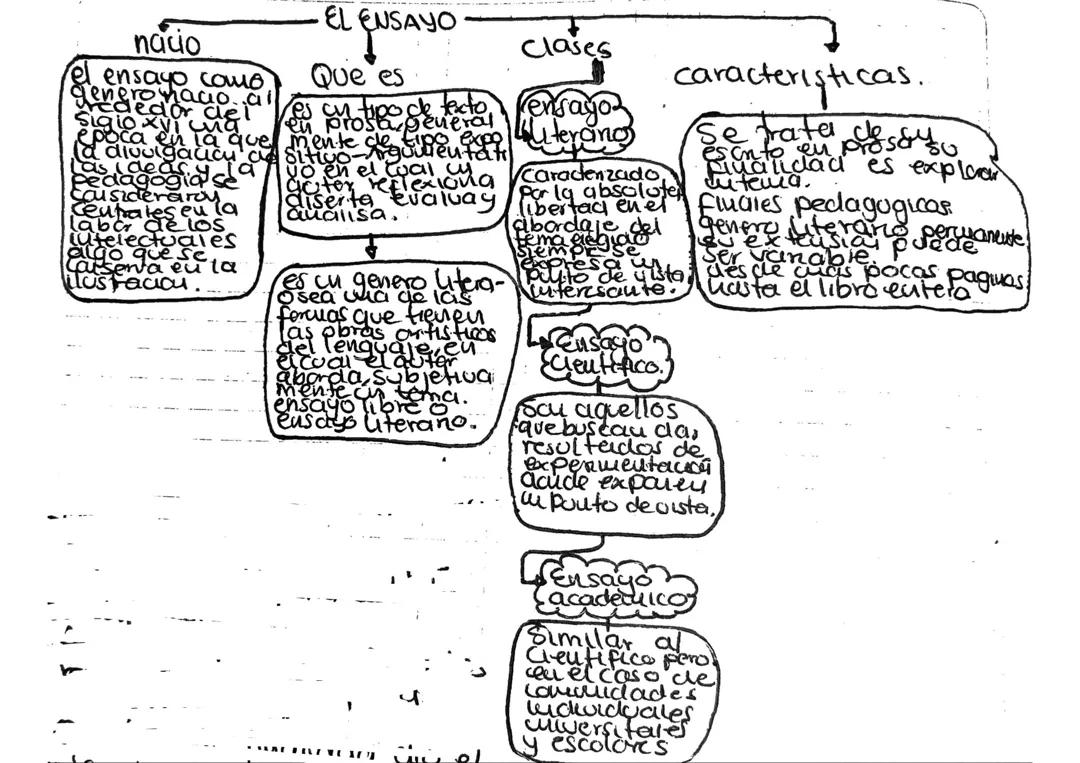 EL ENSAYO
nacio
el ensayo como
genero nacio al
rededor del
siglo XVI una
epoca en la que
la divulgacion de
las ideas y la
pedagogia se
consideraron
centrales en la
labor de los
intelectuales
algo que se
conserva en la
ilustracion.
Que es
es un tipo de texto
en prosa, general
mente de tipo expo
sitivo-Argumentati
vo en el cual un
autor reflexiona
diserta evalua y
analisa.
es un genero litera-
o sea una de las
formas que tienen
las obras artisticas
del lenguaje, en
el cual el autor
aborda, subjetiva
mente un tema.
ensayo libre o
ensayo literario.
Clases
ensayo
literario
Caracterizado
por la absoluta
libertad en el
abordaje del
tema elegido
siempre se
expresa un
punto de vista
interesante.
Ensayo
Cientifico.
son aquellos
que buscan da,
resultados de
experimentacion
donde exponen
un punto de vista.
Ensayo
academico
Similar al
Cientifico pero
en el caso de
comunidades
individuales
universitales
y escolores
caracteristicas.
Se trata de su
escrito en prosa su
finalidad es explorar
un tema.
finales pedagogicas
genero literario permanente
su extension puede
ser variable.
desde unas pocas paginas
hasta el libro entero